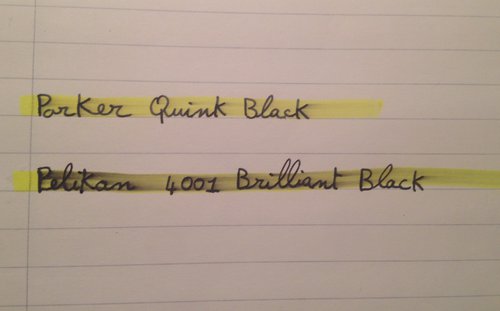 Parker Quink Black
Pelikan 4001 Brilliant Black